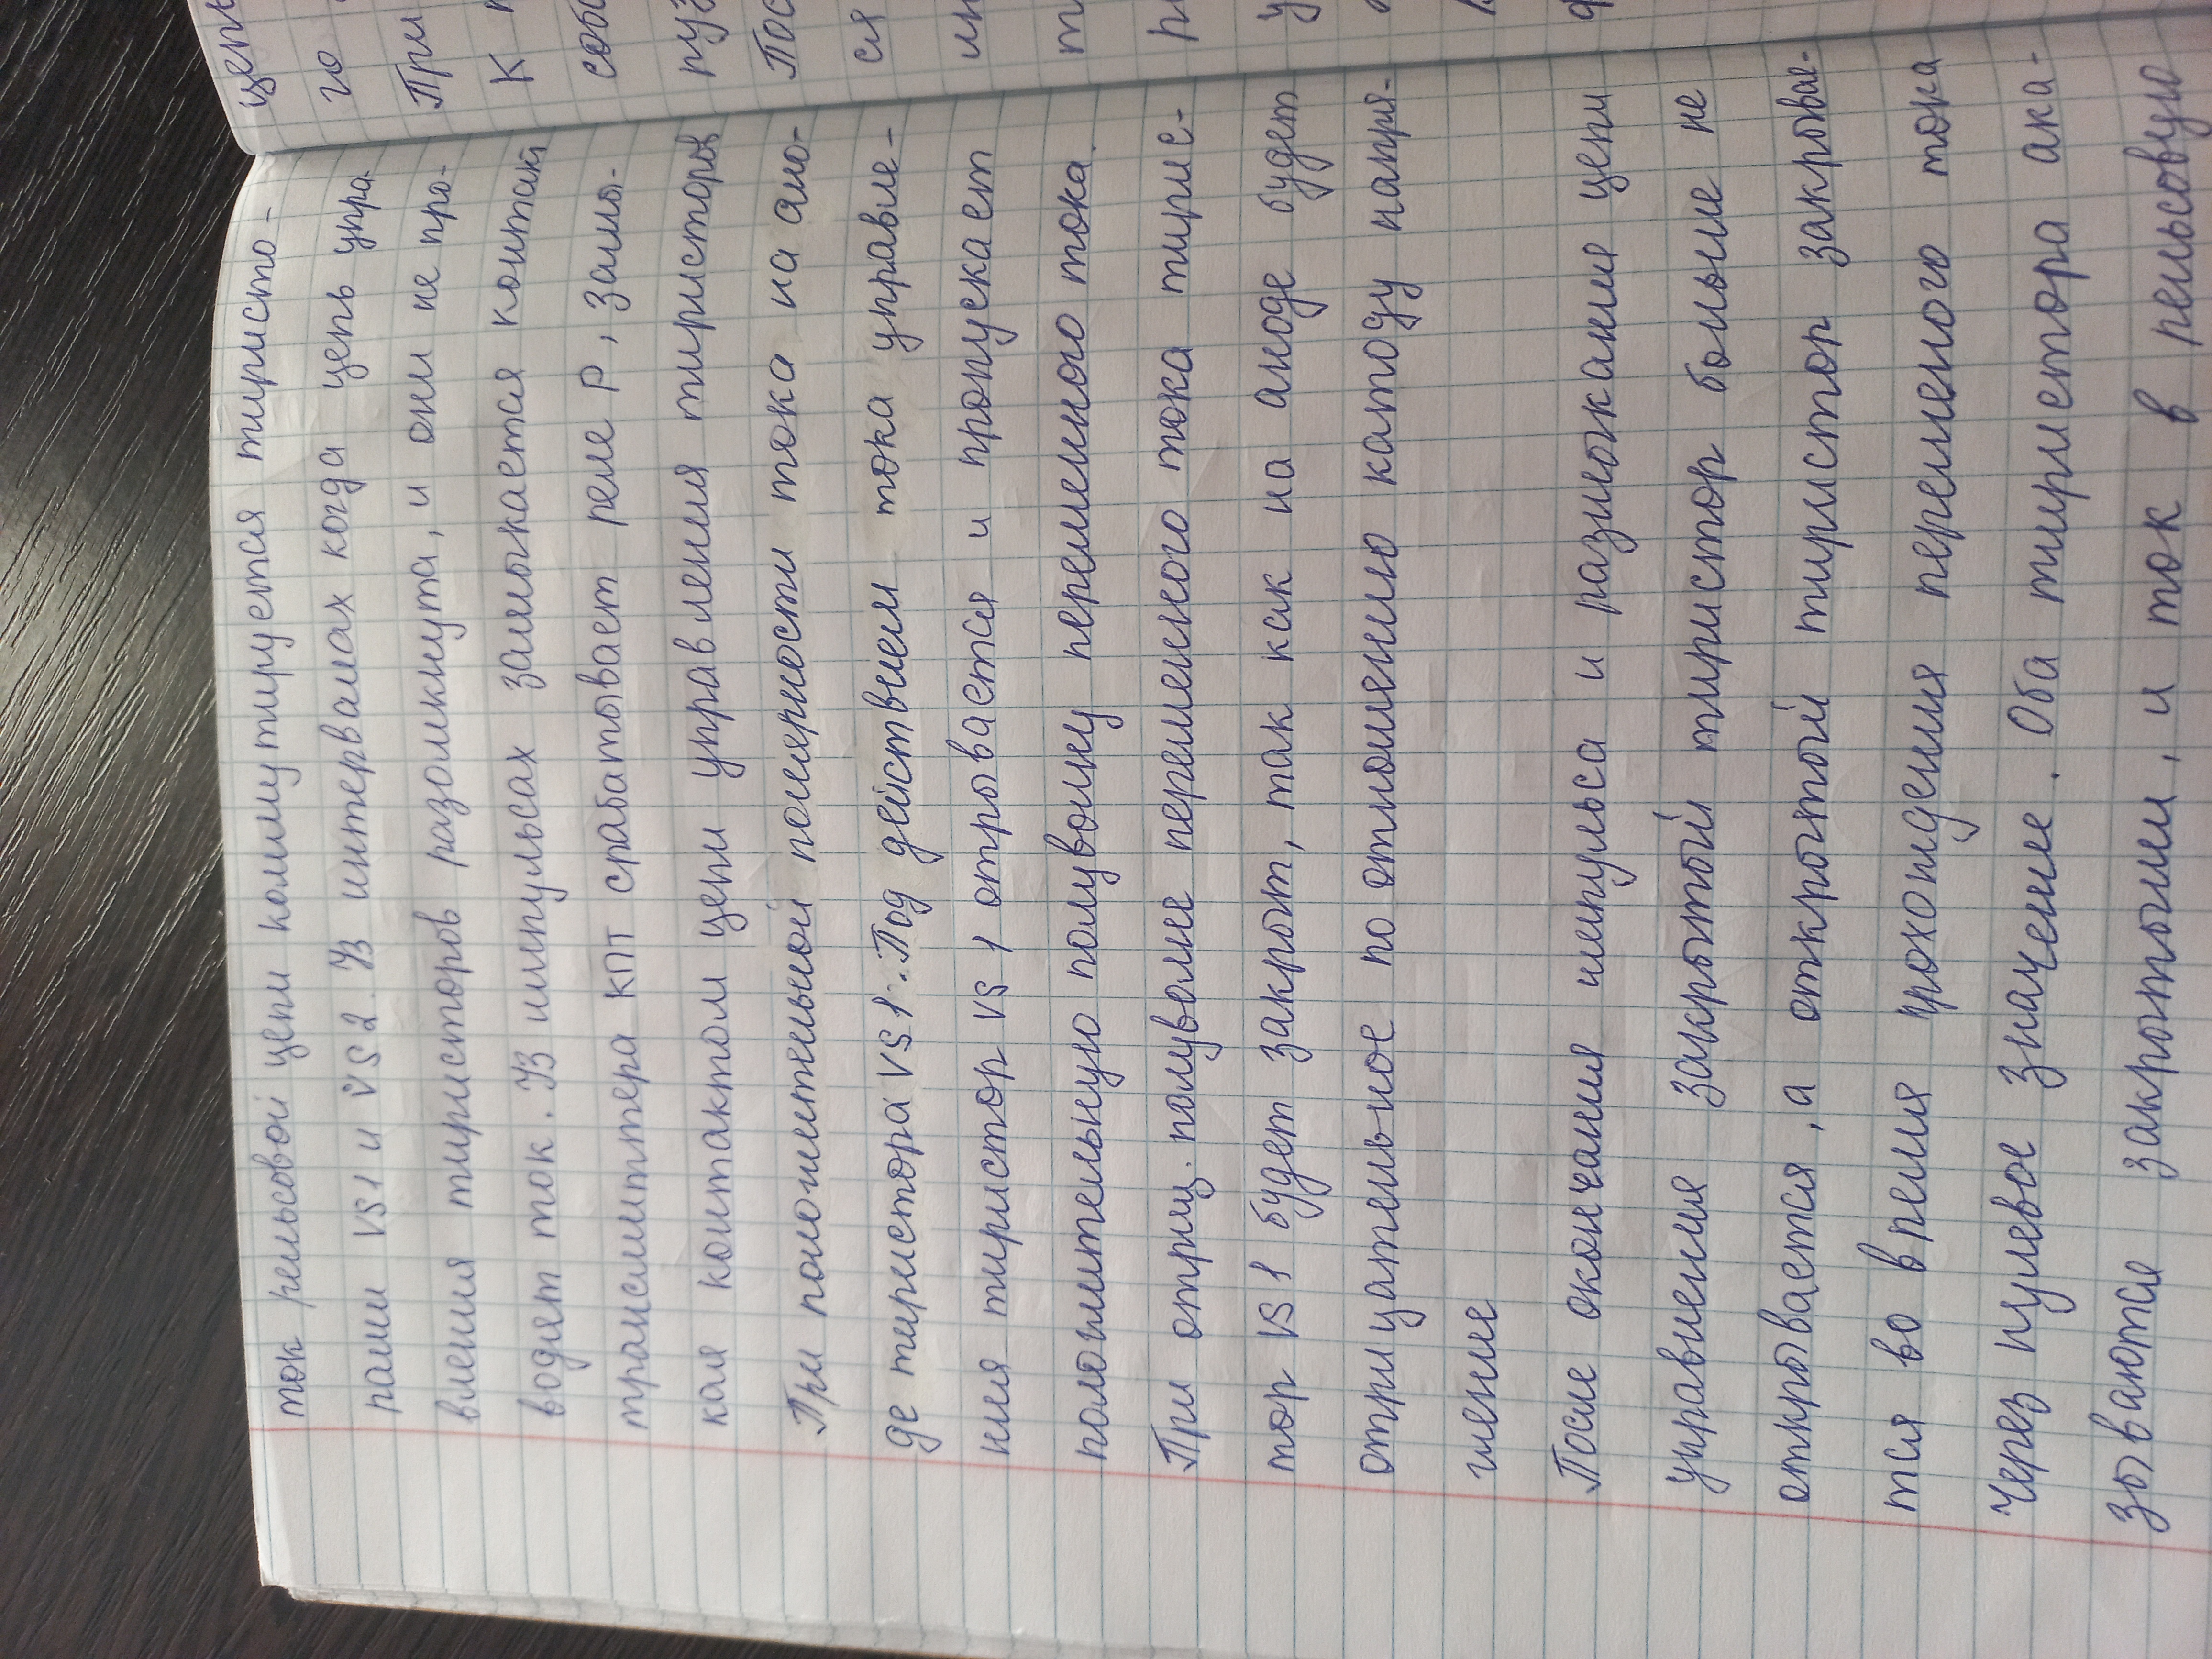 ток рельсовой цепи коммутируется тиристо-
рами VS1 и VS2. В интервалах когда цепь упра-
вления тиристоров разомкнута, и они не про-
водят ток. В импульсах замыкается контакт
трансмиттера КПТ срабатывает реле Р, замы-
кая контактом цепи управления тиристоров
При положительной полярности тока на ано-
де тиристора VS1. Под действием тока управле-
ния тиристор VS 1 откровается и пропускает
положительную полуволну переменного тока.
При отриц. полуволне переменного тока тирис-
тор VS1 будет закрыт, так как на аноде будет
отрицательное по отношению катоду напря-
жение
После окончания импульса и размыкания цепи
управления закрытый тиристор больше не
открывается, а открытый тиристор закрывае-
тся во время прохождения переменого тока
Через нулевое значение. Оба тиристора ока-
зываются закрытыми, и ток в рельсовую
цепь
го
При
К
собо
Пос
ся